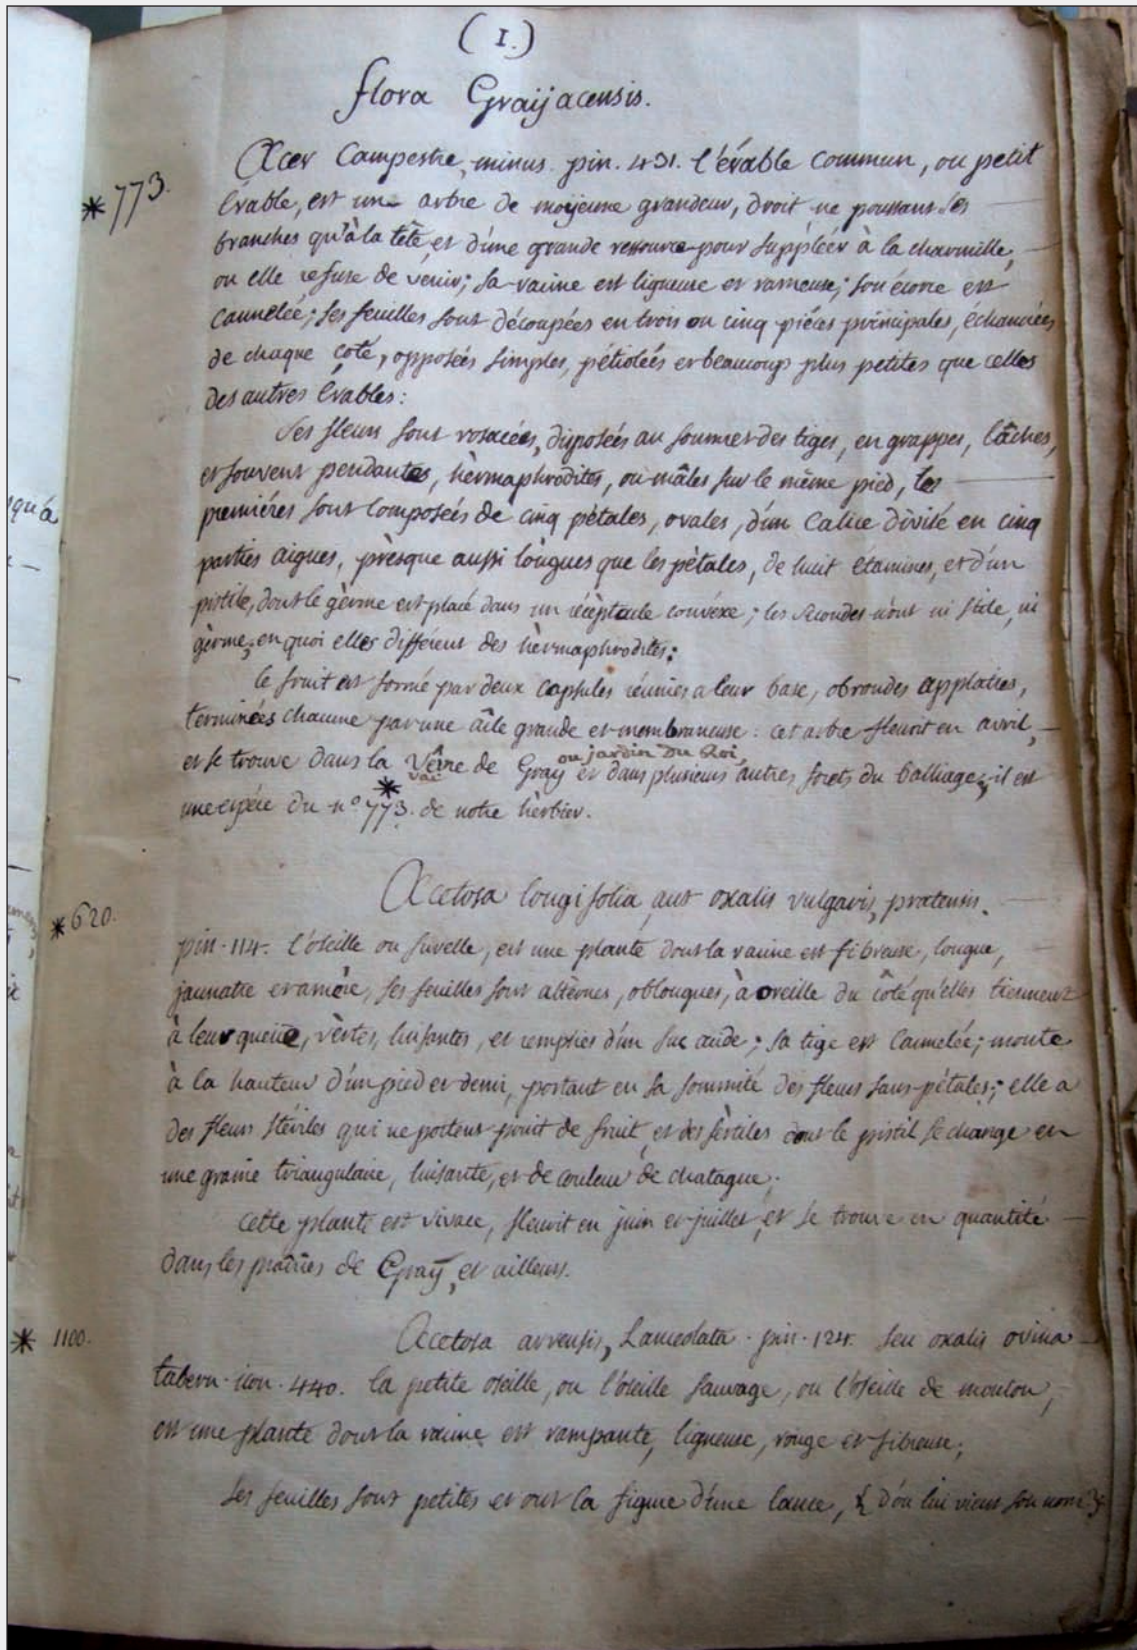 (1.)
flora Graijacensis.
* 773.
Acer Campestre, minus. pin. 431. l'évable commun, ou petit
Erable, est une arbre de moijenne grandeur, droit ne poussant ses
branches qu'à la tête, et d'une grande ressource pour suppléér à la charmille,
ou elle refuse de venir; sa racine est ligneuse et rameuse; son écorce est
cannelée; ses feuilles sont découpées en trois ou cinq piéces principales, échancrées
de chaque coté, opposées simples, pétiolées et beaucoup plus petites que celles
des autres Erables:
Ses fleurs sont rosacées, disposées au sommet des tiges, en grappes, lâches,
et souvent pendantes, hèrmaphrodites, ou mâles sur le même pied, les
premiéres sont composées de cinq pètales, ovales, d'un Calice divisé en cinq
parties aigues, prèsque aussi longues que les pètales, de huit étamines, et d'un
pistile, dont le gèrme est placé dans un récèptacle convéxe; les secondes n'ont ni stile, ni
gèrme, en quoi elles différent des hèrmaphrodites:
le fruit est formé par deux capsules réunies a leur base, obrondes applaties,
terminées chacune par une âile grande et membraneuse: cet arbre fleurit en avril,
ou jardin du Roi,
et se trouve dans la Vêvre de Gray et dans plusieurs autres forets du balliage; il est
une espéce du n° * 773. de notre hèrbier.
* 620.
Acetosa longifolia, aut oxalis vulgaris, pratensis.
pin. 114. l'oseille ou surelle, est une plante dont la racine est fibreuse, longue,
jaunatre et amère, ses feuilles sont altèrnes, oblongues, à oreille du côté qu'elles tiennent
à leur queüe, vèrtes, luisantes, et remplies d'un suc acide; sa tige est cannelée; monte
à la hauteur d'un pied et demi, portant en sa sommité des fleurs sans pétales; elle a
des fleurs stériles qui ne portent point de fruit, et des fèrtiles dont le pistil se change en
une graine triangulaire, luisante, et de couleur de chatague.
cette plante est vivace, fleurit en juin et juillet, et se trouve en quantité
dans les prairies de Graÿ, et ailleurs.
* 1100.
Acetosa arvensis, Lanceolata. pin. 124. seu oxalis ovina
tabern. icon. 440. la petite oseille, ou l'oseille sauvage, ou l'oseille de mouton,
est une plante dont la racine est rampante, ligneuse, rouge et fibreuse;
Ses feuilles sont petites et ont la figure d'une lance, { d'ou lui vient son nom }